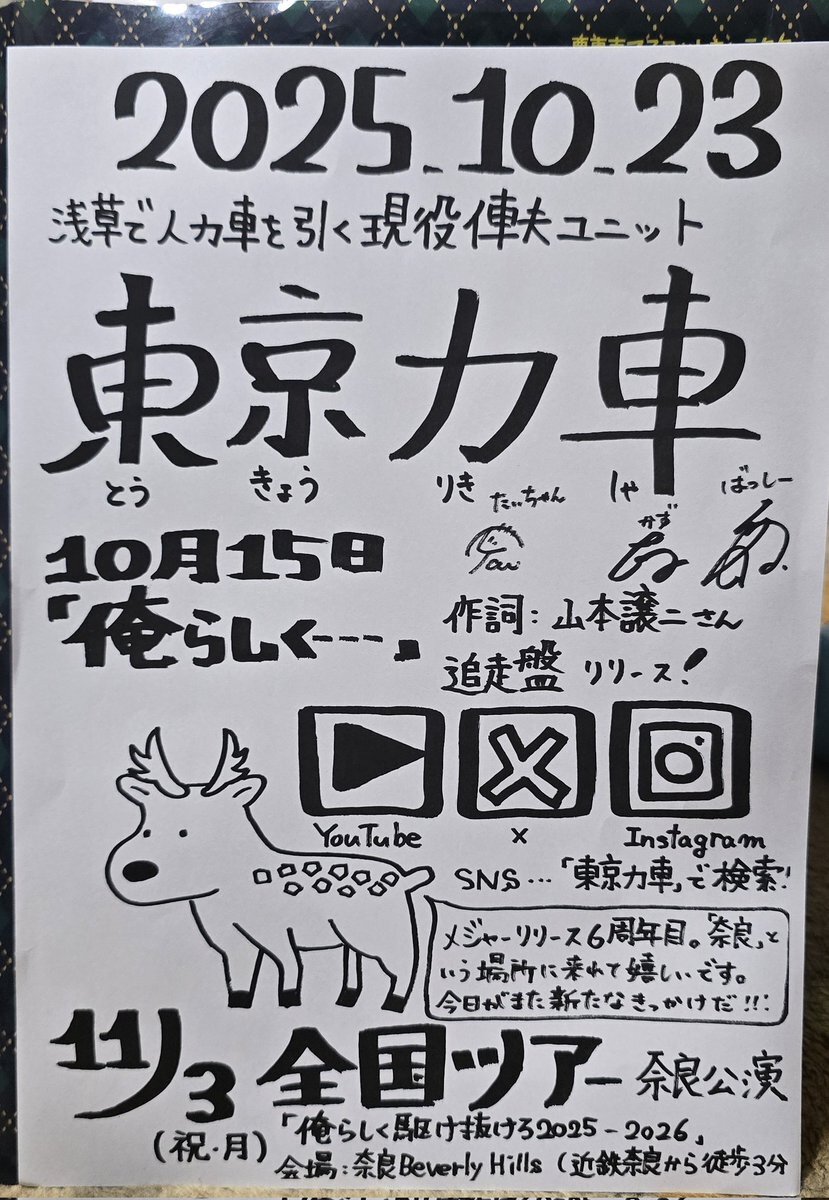 2025.10.23
浅草で人力車を引く現役俥夫ユニット
東京力車
とう きょう りき しゃ
たいちゃん かず ばっしー
10月15日
「俺らしく…」
作詞：山本譲二さん
追走盤 リリース！
YouTube X Instagram
SNS…「東京力車」で検索！
メジャーリリース6周年目。「奈良」と
いう場所に来れて嬉しいです。
今日がまた新たなきっかけだ!!!
11/3 全国ツアー 奈良公演
（祝・月）「俺らしく駆け抜けろ2025-2026」
会場：奈良Beverly Hills（近鉄奈良から徒歩3分